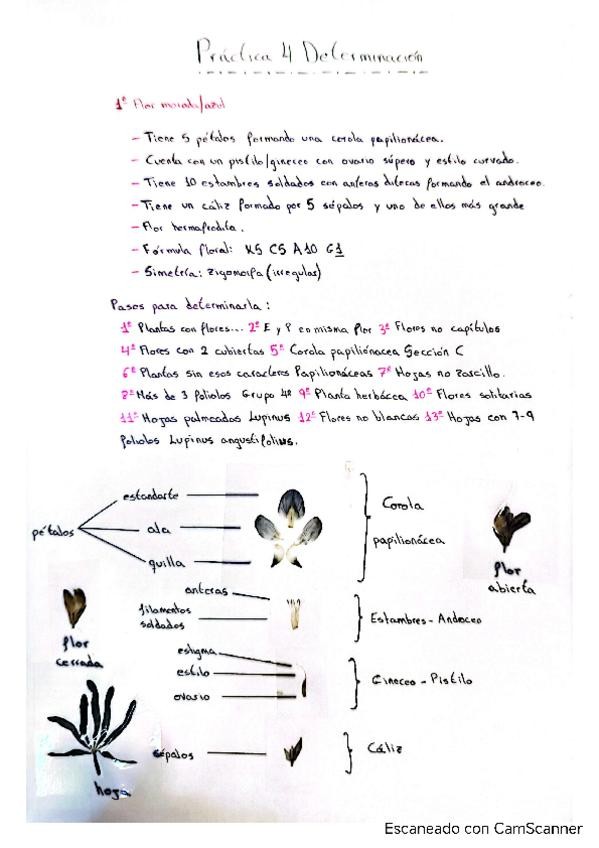 Práctica 4 Determinación
1º Flor morada/azul
- Tiene 5 pétalos formando una corola papilionácea.
- Cuenta con un pistilo/gineceo con ovario súpero y estilo curvado.
- Tiene 10 estambres soldados con anteras ditecas formando el androceo.
- Tiene un cáliz formado por 5 sépalos y uno de ellos más grande
- Flor hermafrodita.
- Fórmula floral: K5 C5 A10 G1
- Simetría: zigomorfa (irregular)
Pasos para determinarla:
1º Plantas con flores... 2º E y P en misma flor 3º Flores no capítulos
4º Flores con 2 cubiertas 5º Corola papiliónacea Sección C
6º Plantas sin esos caracteres Papilionáceas 7º Hojas no zarcillo.
8º Más de 3 foliolos Grupo 4º 9º Planta herbácea 10º Flores solitarias
11º Hojas palmeadas Lupinus 12º Flores no blancas 13º Hojas con 7-9
foliolos Lupinus angustifolius.
estandarte
pétalos
ala
quilla
Corola
papilionácea
flor
abierta
anteras
filamentos
soldados
Estambres - Androceo
flor
cerrada
estigma
estilo
ovario
Gineceo - Pistilo
sépalos
Cáliz
hoja
Escaneado con CamScanner